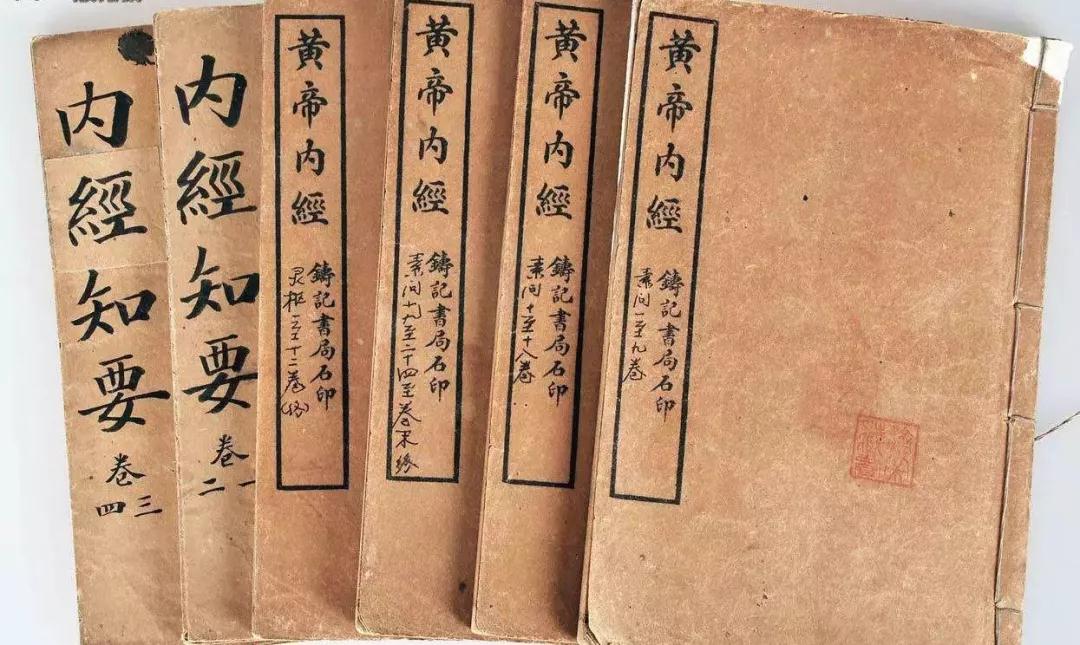 黄帝内經
鑄記書局石印
素问一至九卷
黄帝内經
鑄記書局石印
素问十至十八卷
黄帝内經
鑄記書局石印
素问十九至二十四至卷末终
黄帝内經
鑄記書局石印
灵枢一至十二卷(终)
内經知要
卷一二
内經知要
卷三四